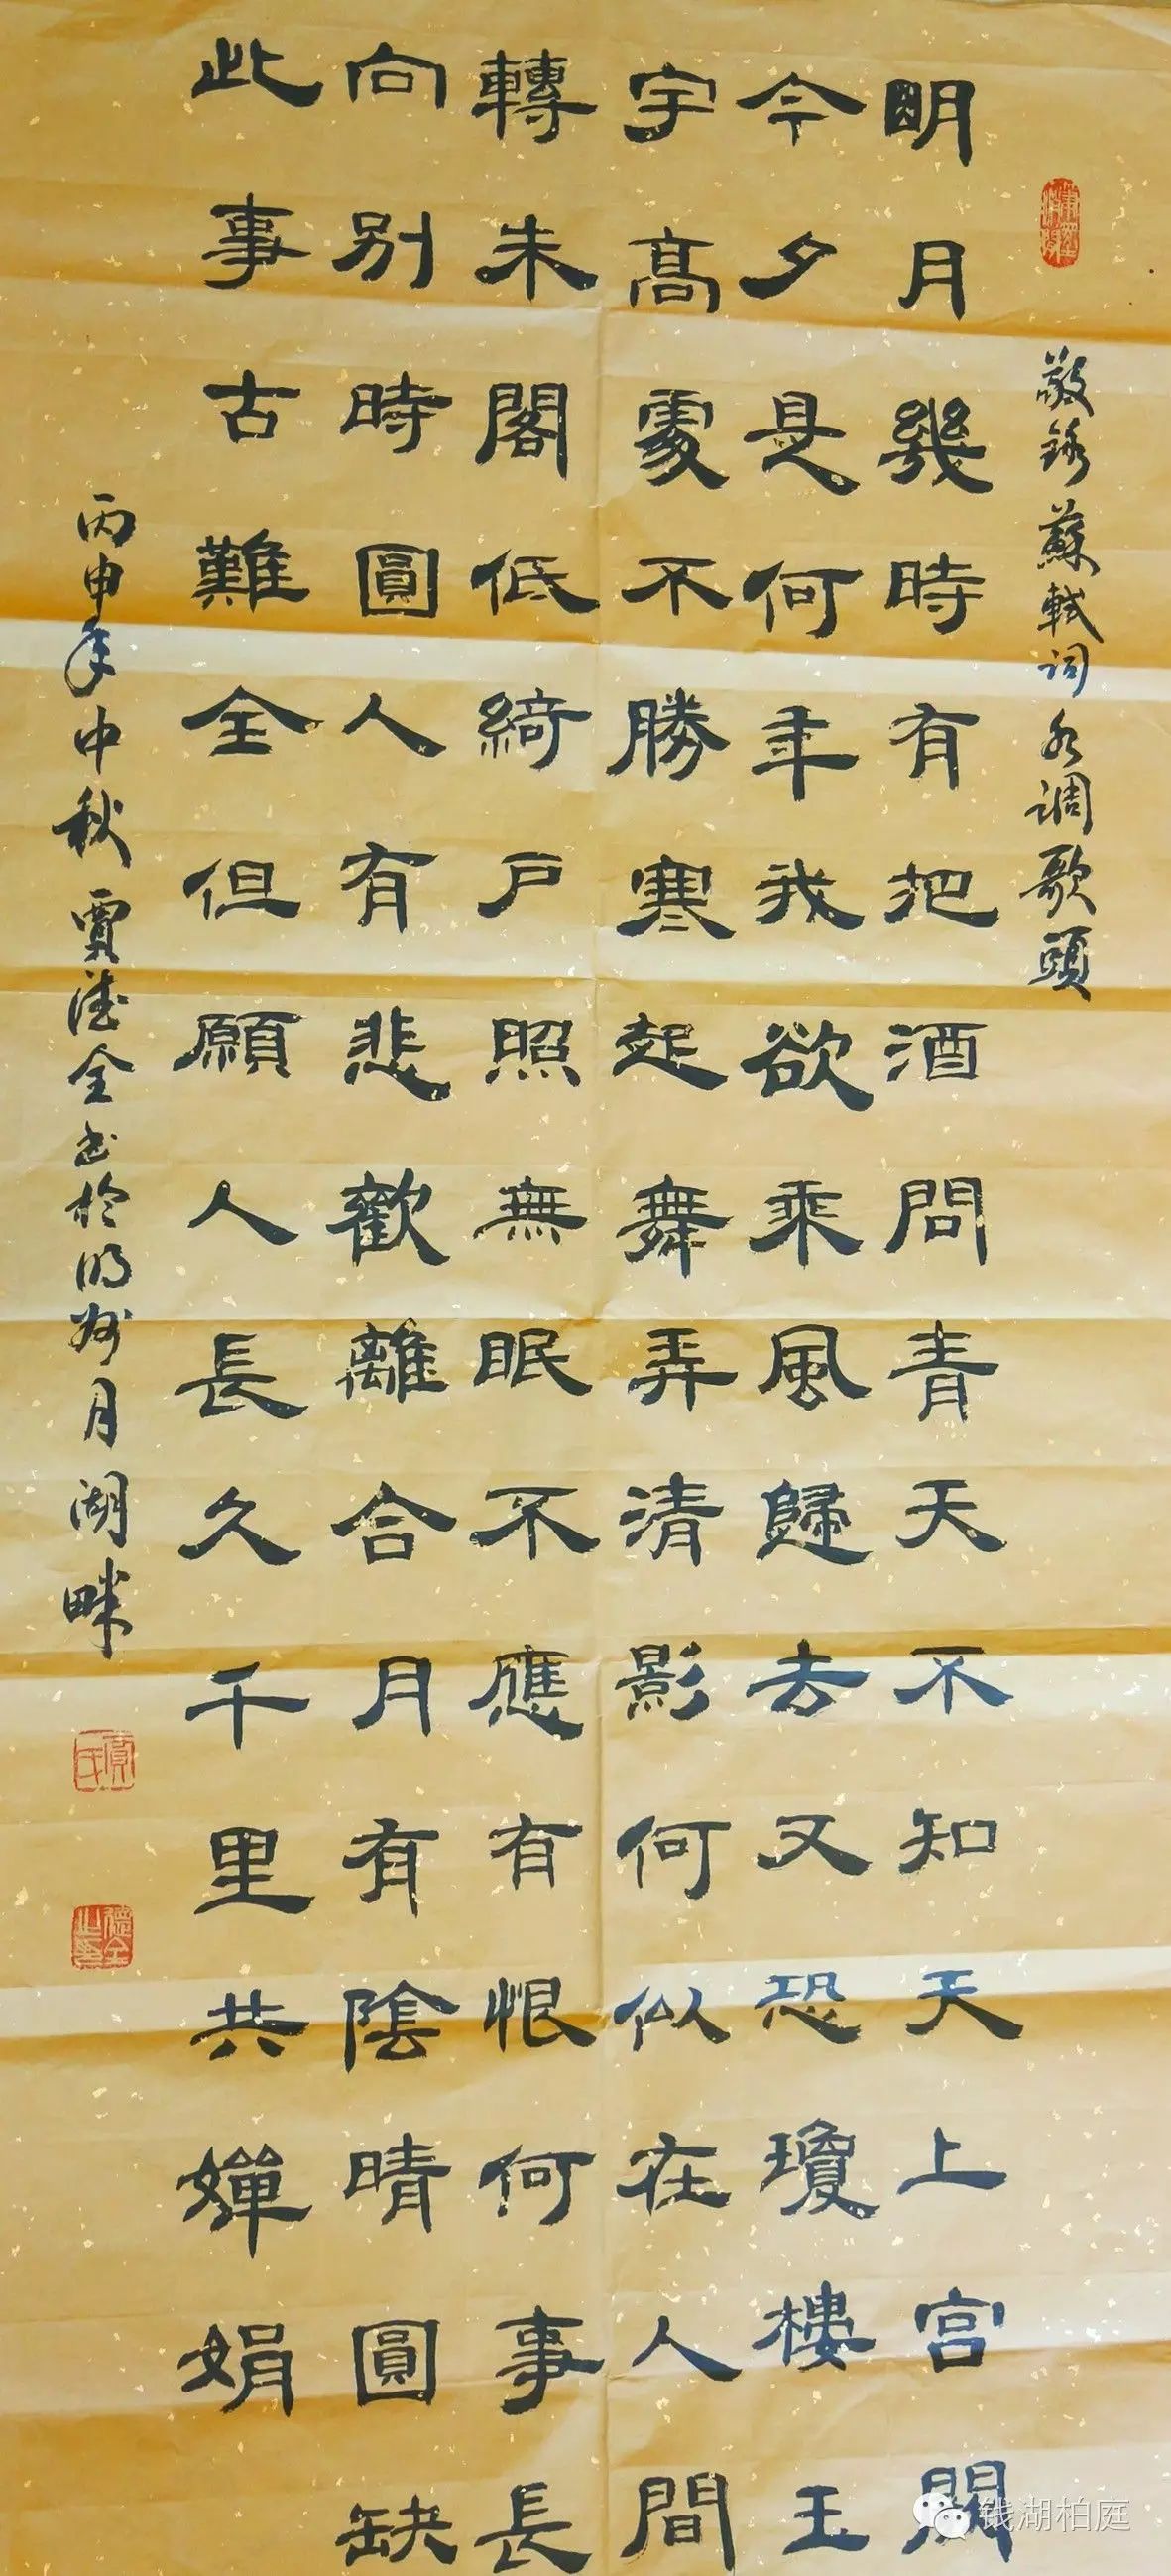 敬錄蘇軾詞水調歌頭
明月幾時有把酒問青天不知天上宮闕
今夕是何年我欲乘風歸去又恐瓊樓玉
宇髙處不勝寒起舞弄清影何似在人間
轉朱閣低綺戶照無眠不應有恨何事長
向別時圓人有悲歡離合月有陰晴圓缺
此事古難全但願人長久千里共嬋娟
丙申年中秋賈德全书於明州月湖畔
賈氏
德全之印
钱湖柏庭